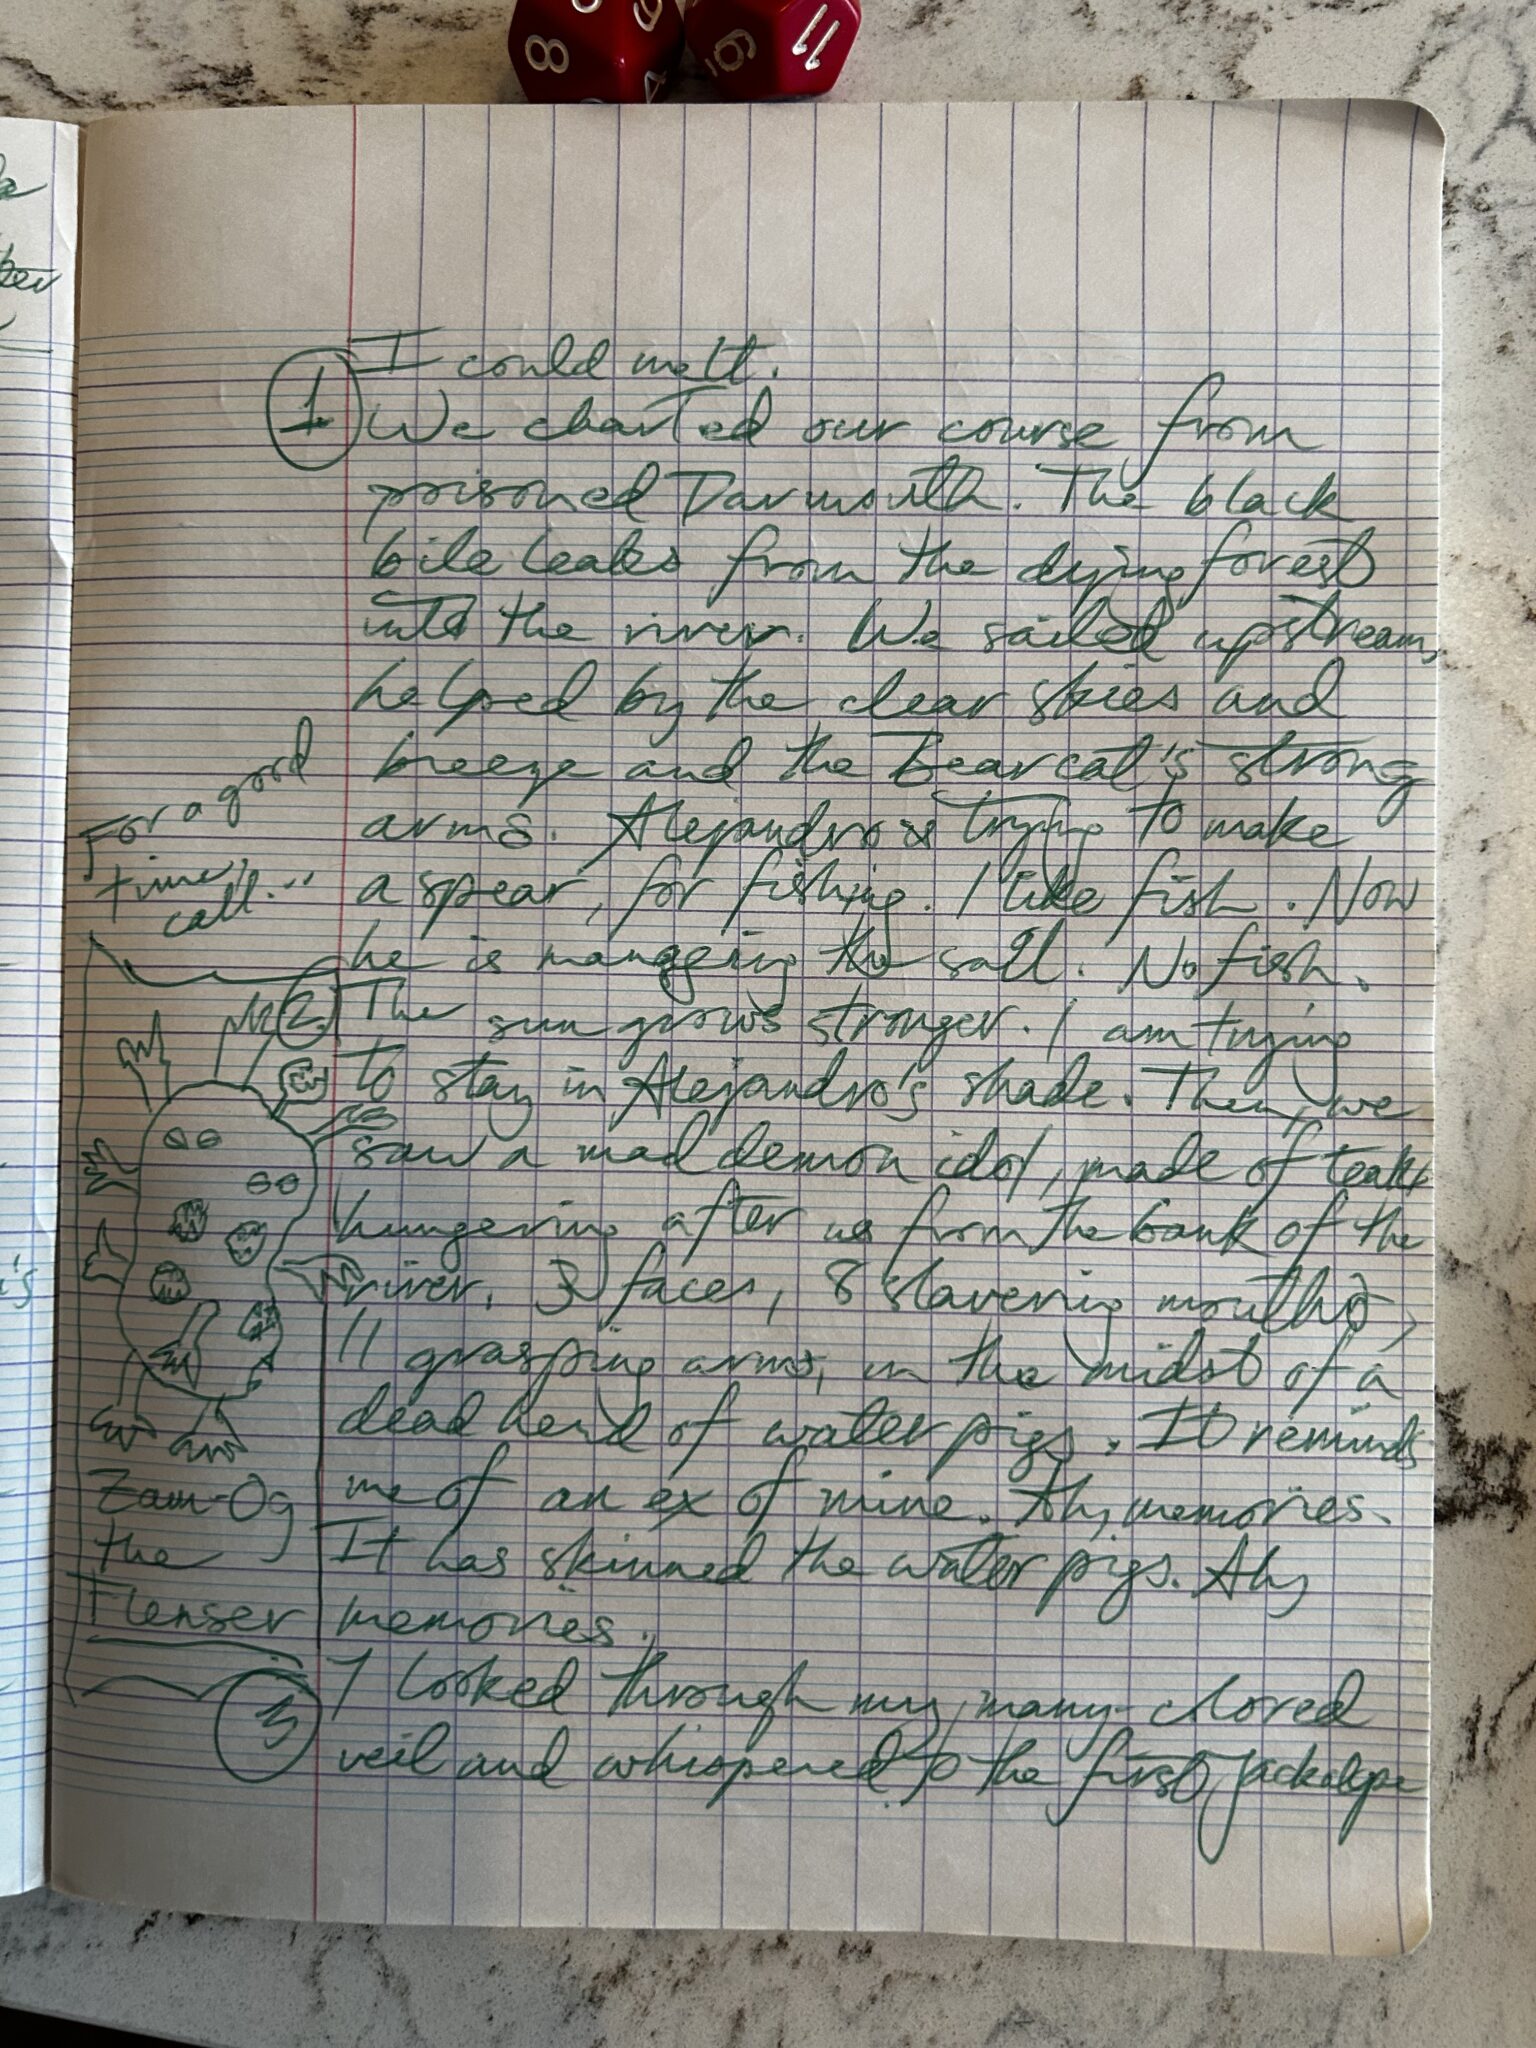 8
6
11
I could melt.
1. We charted our course from
poisoned Darmouth. The black
bile leaks from the dying forest
into the river. We sailed upstream,
helped by the clear skies and
breeze and the Bearcat's strong
arms. Alejandro is trying to make
a spear, for fishing. I like fish. Now
he is mangering the sail. No fish.
2. The sun grows stronger. I am trying
to stay in Alejandro's shade. Then, we
saw a mad demon idol, made of teak,
hungering after us from the bank of the
river. 3 faces, 8 slavering mouths,
11 grasping arms, in the midst of a
dead herd of water pigs. It reminds
me of an ex of mine. Ah, memories.
It has skinned the water pigs. Ah,
memories.
3 I looked through my many-clored
veil and whispered to the first jackalope
For a good
time,
call...
Zam-Og
the
Flenser